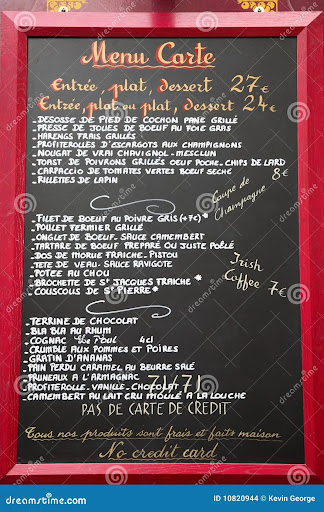 Menu Carte
Entrée, plat, dessert 27€
Entrée, plat ou plat, dessert 24€
_DESOSSE DE PIED DE COCHON PANE GRILLÉ
_PRESSE DE JOUES DE BOEUF AU FOIE GRAS
_HARENGS FRAIS GRILLES
_PROFITEROLLES D'ESCARGOTS AUX CHAMPIGNONS
_NOUGAT DE VRAI CHAVIGNOL-MESCLUN
_TOAST DE POIVRONS GRILLÉS OEUF POCHE-CHIPS DE LARD
_CARPACCIO DE TOMATES VERTES BOEUF SECHÉ
_RILLETTES DE LAPIN
Coupe de Champagne 8€
_FILET DE BOEUF AU POIVRE GRIS (+7€)*
_POULET FERMIER GRILLÉ
_ONGLET DE BOEUF. SAUCE CAMEMBERT
_TARTARE DE BOEUF PREPARÉ OU JUSTE POÊLÉ
_DOS DE MORUE FRAICHE. PISTOU
_TETE DE VEAU. SAUCE RAVIGOTE
_POTEE AU CHOU
_BROCHETTE DE St JACQUES FRAICHE *
_COUSCOUS DE St PIERRE *
Irish Coffee 7€
_TERRINE DE CHOCOLAT
_BLA BLA AU RHUM
_COGNAC 4cl
_CRUMBLE AUX POMMES ET POIRES
_GRATIN D'ANANAS
_PAIN PERDU CARAMEL AU BEURRE SALÉ
_PRUNEAUX A L'ARMAGNAC
_PROFITEROLE. VANILLE. CHOCOLAT
_CAMEMBERT AU LAIT CRU MOULÉ A LA LOUCHE
PAS DE CARTE DE CREDIT
Tous nos produits sont frais et faits maison
No credit card
dreamstime.com
ID 10820944 © Kevin George